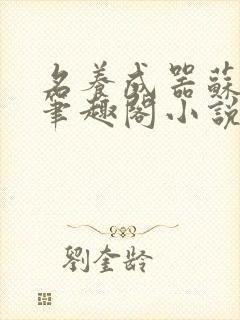 名養成器蘇
筆趣閣小說
劉奎齡